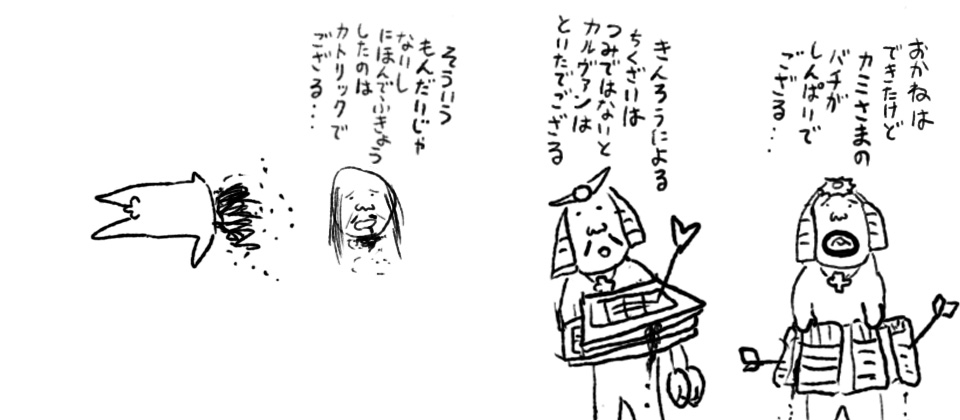 おかねは
できたけど
カミさまの
バチが
しんぱいで
ござる…
きんろうによる
ちくざいは
つみではないと
カルヴァンは
といたでござる
そういう
もんだいじゃ
ないし
にほんでふきょう
したのは
カトリックで
ござる…